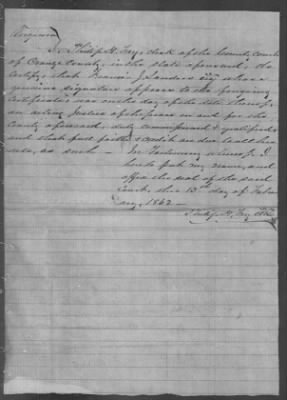 Virginia
I, Philip H. Fry, clerk of the County Court
of Orange County, in the state aforesaid, do
certify that Francis J. Sanders Esq whose
genuine signature appears to the foregoing
Certificate was on the day of the date thereof,
an acting Justice of the peace in and for the
County aforesaid, duly commissioned & qualified
and that full faith & credit are due to all his
acts, as such — In Testimony whereof, I
have put my name, and
affix the seal of the said
Court, this 13th day of Febru
ary, 1862 —
Philip H. Fry Clk